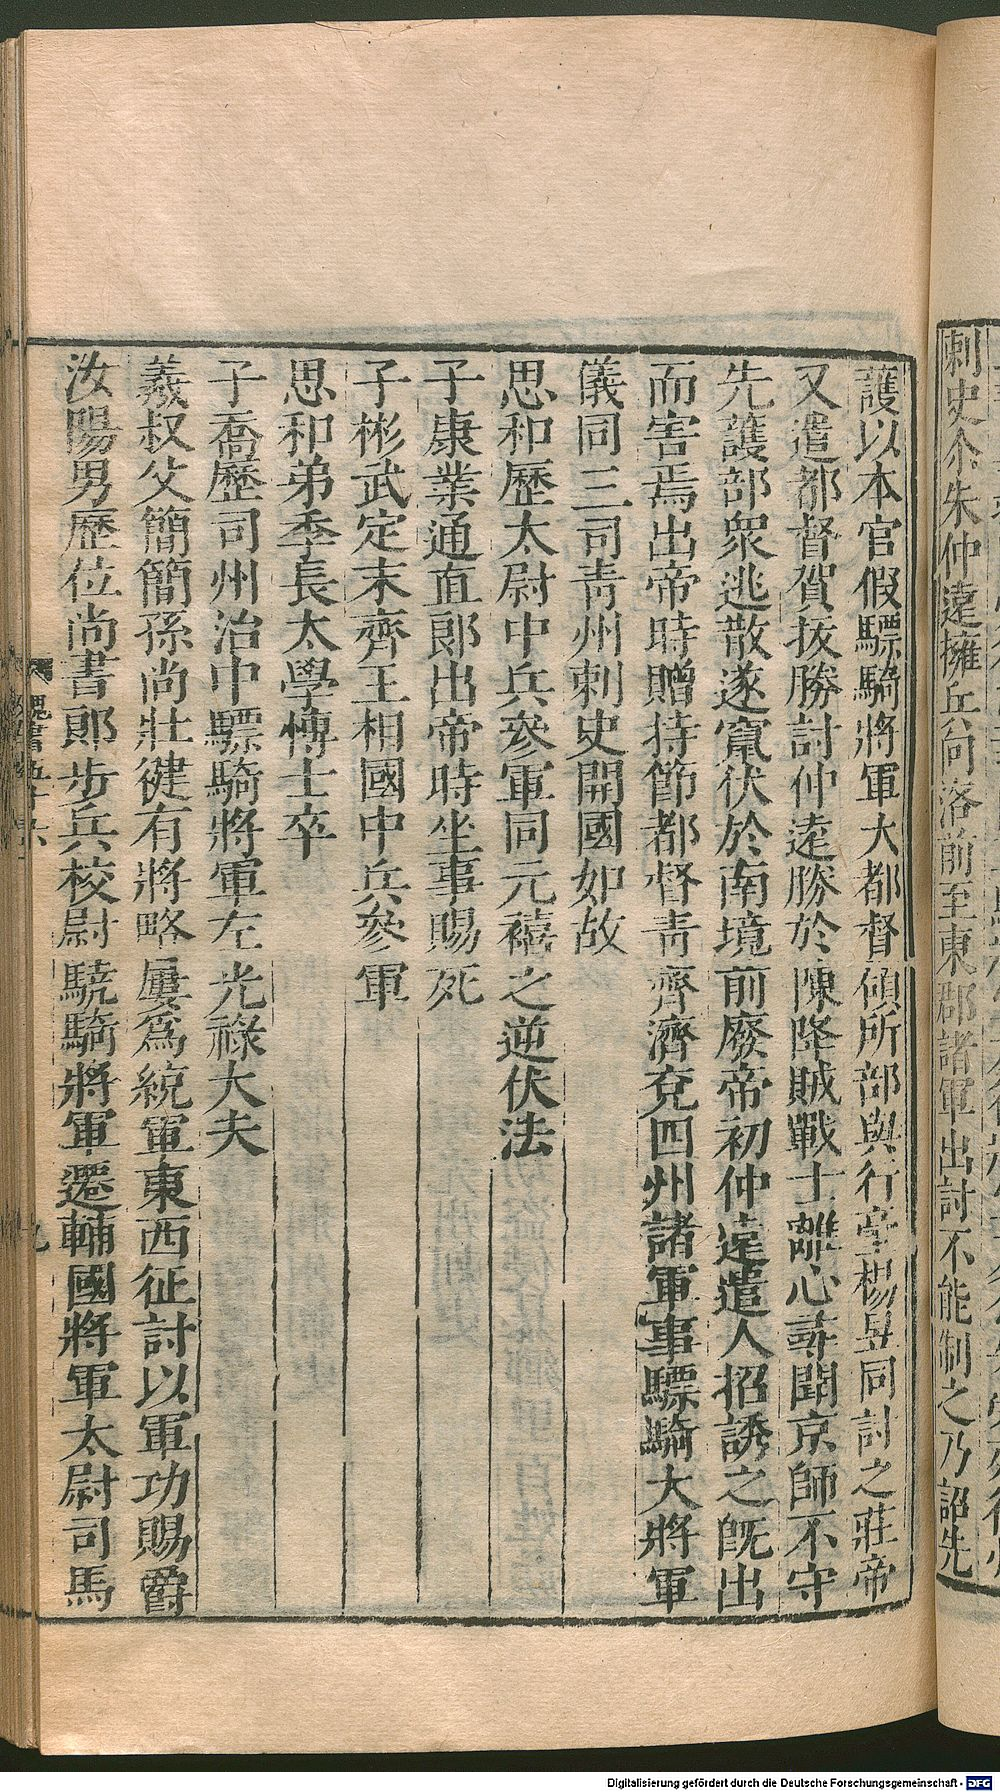 刺史尒朱仲遠擁兵向洛前至東郡諸軍出討不能制之乃詔先
護以本官假驃騎將軍大都督傾所部與行臺楊昱同討之莊帝
又遣都督賀拔勝討仲遠勝於陳降賊戰士離心尋聞京師不守
先護部衆逃散遂竄伏於南境前廢帝初仲遠遣人招誘之旣出
而害焉出帝時贈持節都督青齊濟兗四州諸軍事驃騎大將軍
儀同三司青州刺史開國如故
思和歷太尉中兵參軍同元禧之逆伏法
子康業通直郎出帝時坐事賜死
子彬武定末齊王相國中兵參軍
思和弟季長太學博士卒
子喬歷司州治中驃騎將軍左光祿大夫
羲叔父簡簡孫尚壯健有將略屢爲統軍東西征討以軍功賜爵
汝陽男歷位尚書郎步兵校尉驍騎將軍遷輔國將軍太尉司馬
魏書五十六
九
Digitalisierung gefördert durch die Deutsche Forschungsgemeinschaft - DFG